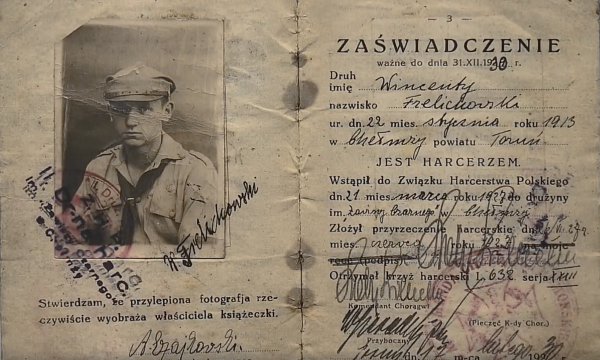 II. Drużyna Harc.
im. Zawiszy Czarnego
w Chełmży
W. Frelichowski
Stwierdzam, że przylepiona fotografja rze-
czywiście wyobraża właściciela książeczki.
— 3 —
ZAŚWIADCZENIE
ważne do dnia 31.XII.1930 r.
Druh
imię Wincenty
nazwisko Frelichowski
ur. dn. 22 mies. stycznia roku 1913
w Chełmży powiatu Toruń
JEST HARCERZEM.
Wstąpił do Związku Harcerstwa Polskiego
dn. 21 mies. marca roku 1927 do drużyny
im. Zawiszy Czarnego w Chełmży
Złożył przyrzeczenie harcerskie dn.
mies. czerwca roku na moje
ręce (podpis)
Otrzymał krzyż harcerski L. 632 serja
Komendant Chorągwi
Przyboczny (Pieczęć K-dy Chor.)